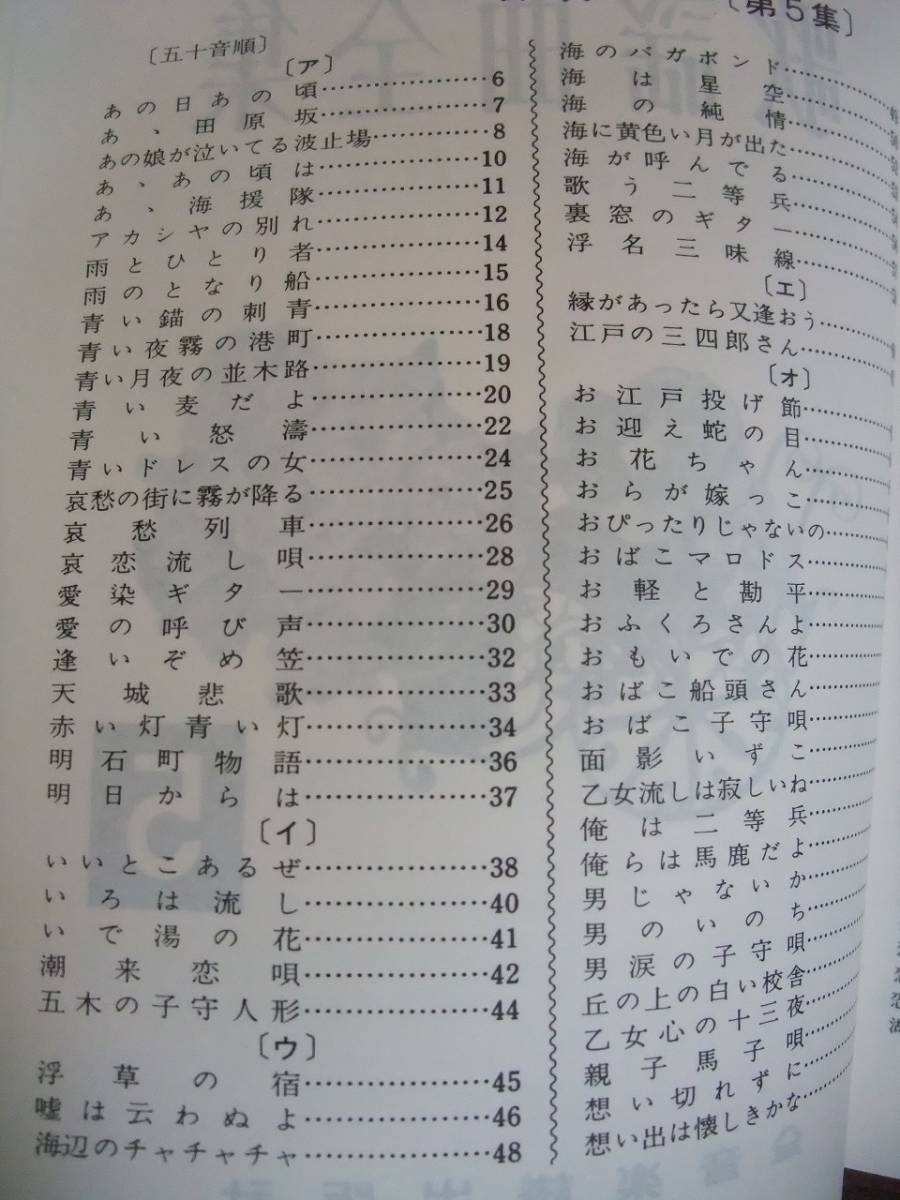 〔第5集〕
〔五十音順〕
〔ア〕
あの日あの頃…………6
あゝ田原坂…………7
あの娘が泣いてる波止場…………8
あゝあの頃は…………10
あゝ海援隊…………11
アカシヤの別れ…………12
雨とひとり者…………14
雨のとなり船…………15
青い錨の刺青…………16
青い夜霧の港町…………18
青い月夜の並木路…………19
青い麦だよ…………20
青い怒濤…………22
青いドレスの女…………24
哀愁の街に霧が降る…………25
哀愁列車…………26
哀恋流し唄…………28
愛染ギター…………29
愛の呼び声…………30
逢いぞめ笠…………32
天城悲歌…………33
赤い灯青い灯…………34
明石町物語…………36
明日からは…………37
〔イ〕
いいとこあるぜ…………38
いろは流し…………40
いで湯の花…………41
潮来恋唄…………42
五木の子守人形…………44
〔ウ〕
浮草の宿…………45
嘘は云わぬよ…………46
海辺のチャチャチャ…………48
海のバガボンド…………
海は星空…………
海の純情…………
海に黄色い月が出た…………
海が呼んでる…………
歌う二等兵…………
裏窓のギター…………
浮名三味線…………
〔エ〕
縁があったら又逢おう…………
江戸の三四郎さん…………
〔オ〕
お江戸投げ節…………
お迎え蛇の目…………
お花ちゃん…………
おらが嫁っこ…………
おぴったりじゃないの…………
おばこマロドス…………
お軽と勘平…………
おふくろさんよ…………
おもいでの花…………
おばこ船頭さん…………
おばこ子守唄…………
面影いずこ…………
乙女流しは寂しいね…………
俺は二等兵…………
俺らは馬鹿だよ…………
男じゃないか…………
男のいのち…………
男涙の子守唄…………
丘の上の白い校舎…………
乙女心の十三夜…………
親子馬子唄…………
想い切れずに…………
想い出は懐しきかな…………